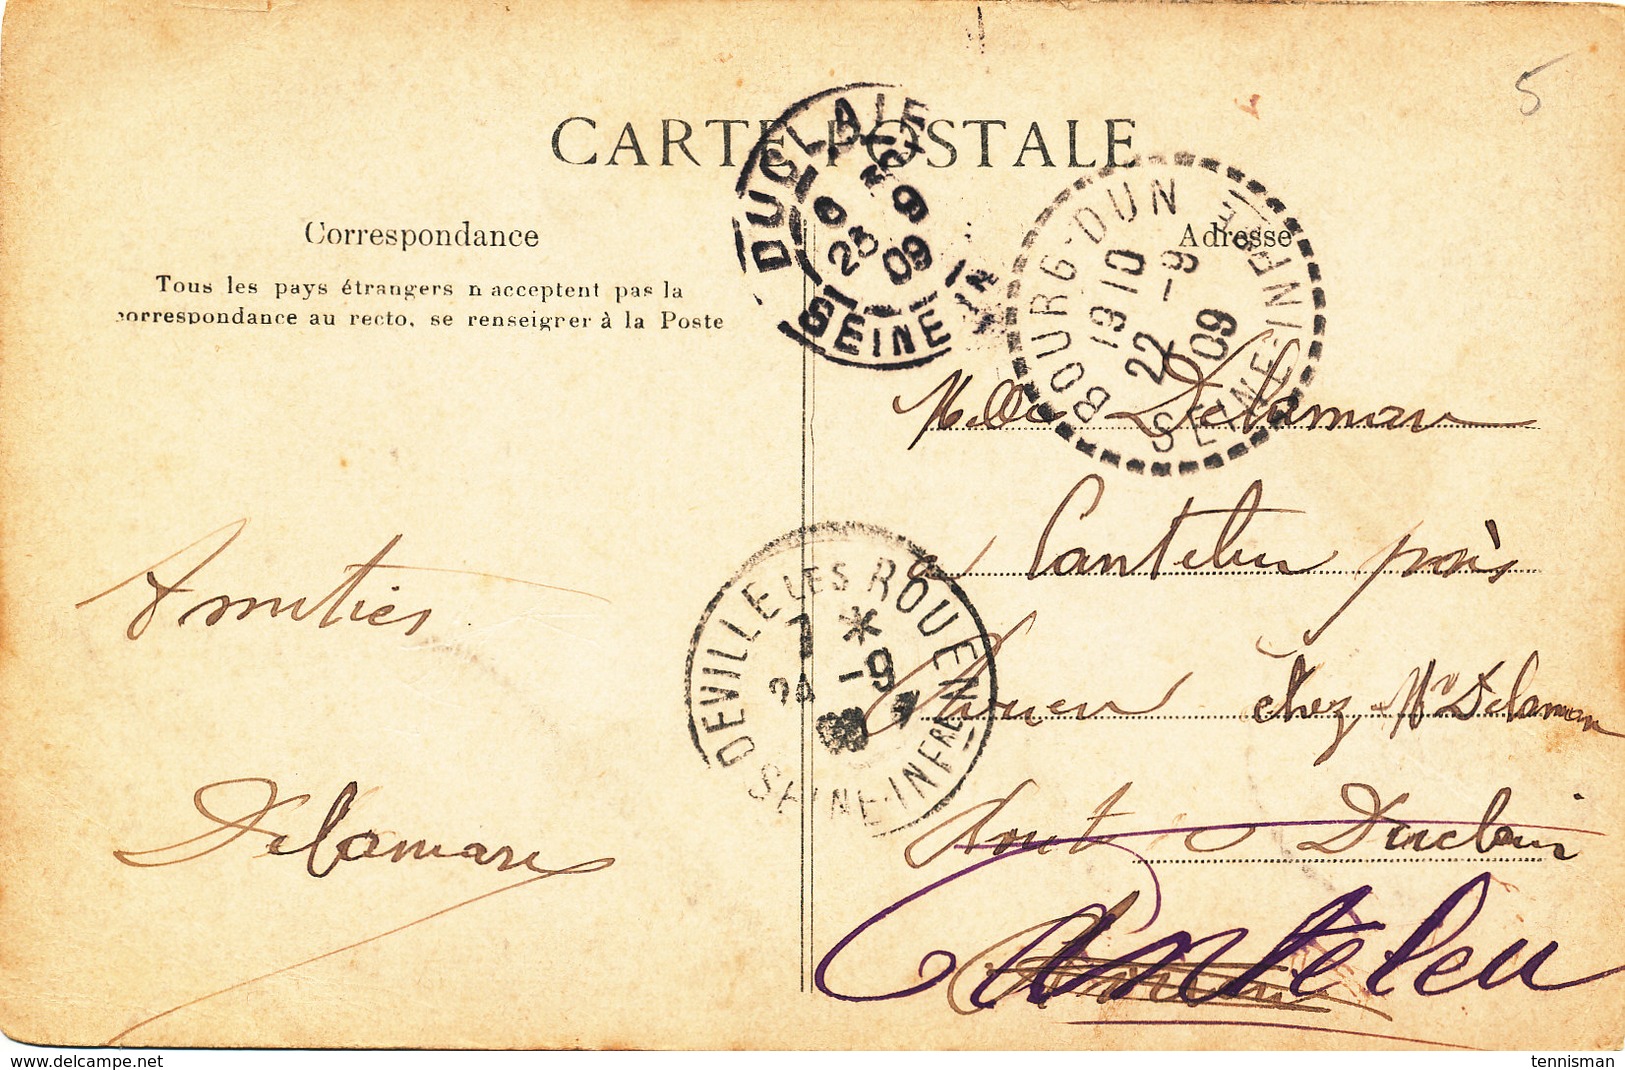 CARTE POSTALE
5
Correspondance
Tous les pays étrangers n'acceptent pas la
correspondance au recto, se renseigner à la Poste
Adresse
DUCLAIR
6 30
23 9
09
SEINE IN
BOURG-DUN
19 10
22 -9
09
SEINE-INFRE
DEVILLE LES ROUEN
7 *
24 -9
09
SEINE-INFRE
Amitiés
Delamare
Melle Delamare
à Canteleu près
Rouen chez Mr Delamare
Duclair
Canteleu
delcampe.net
tennisman